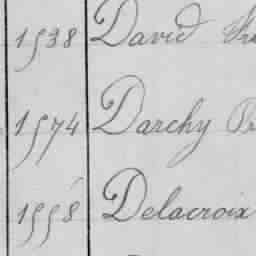 1538 David
1574 Darchy
1558 Delacroix